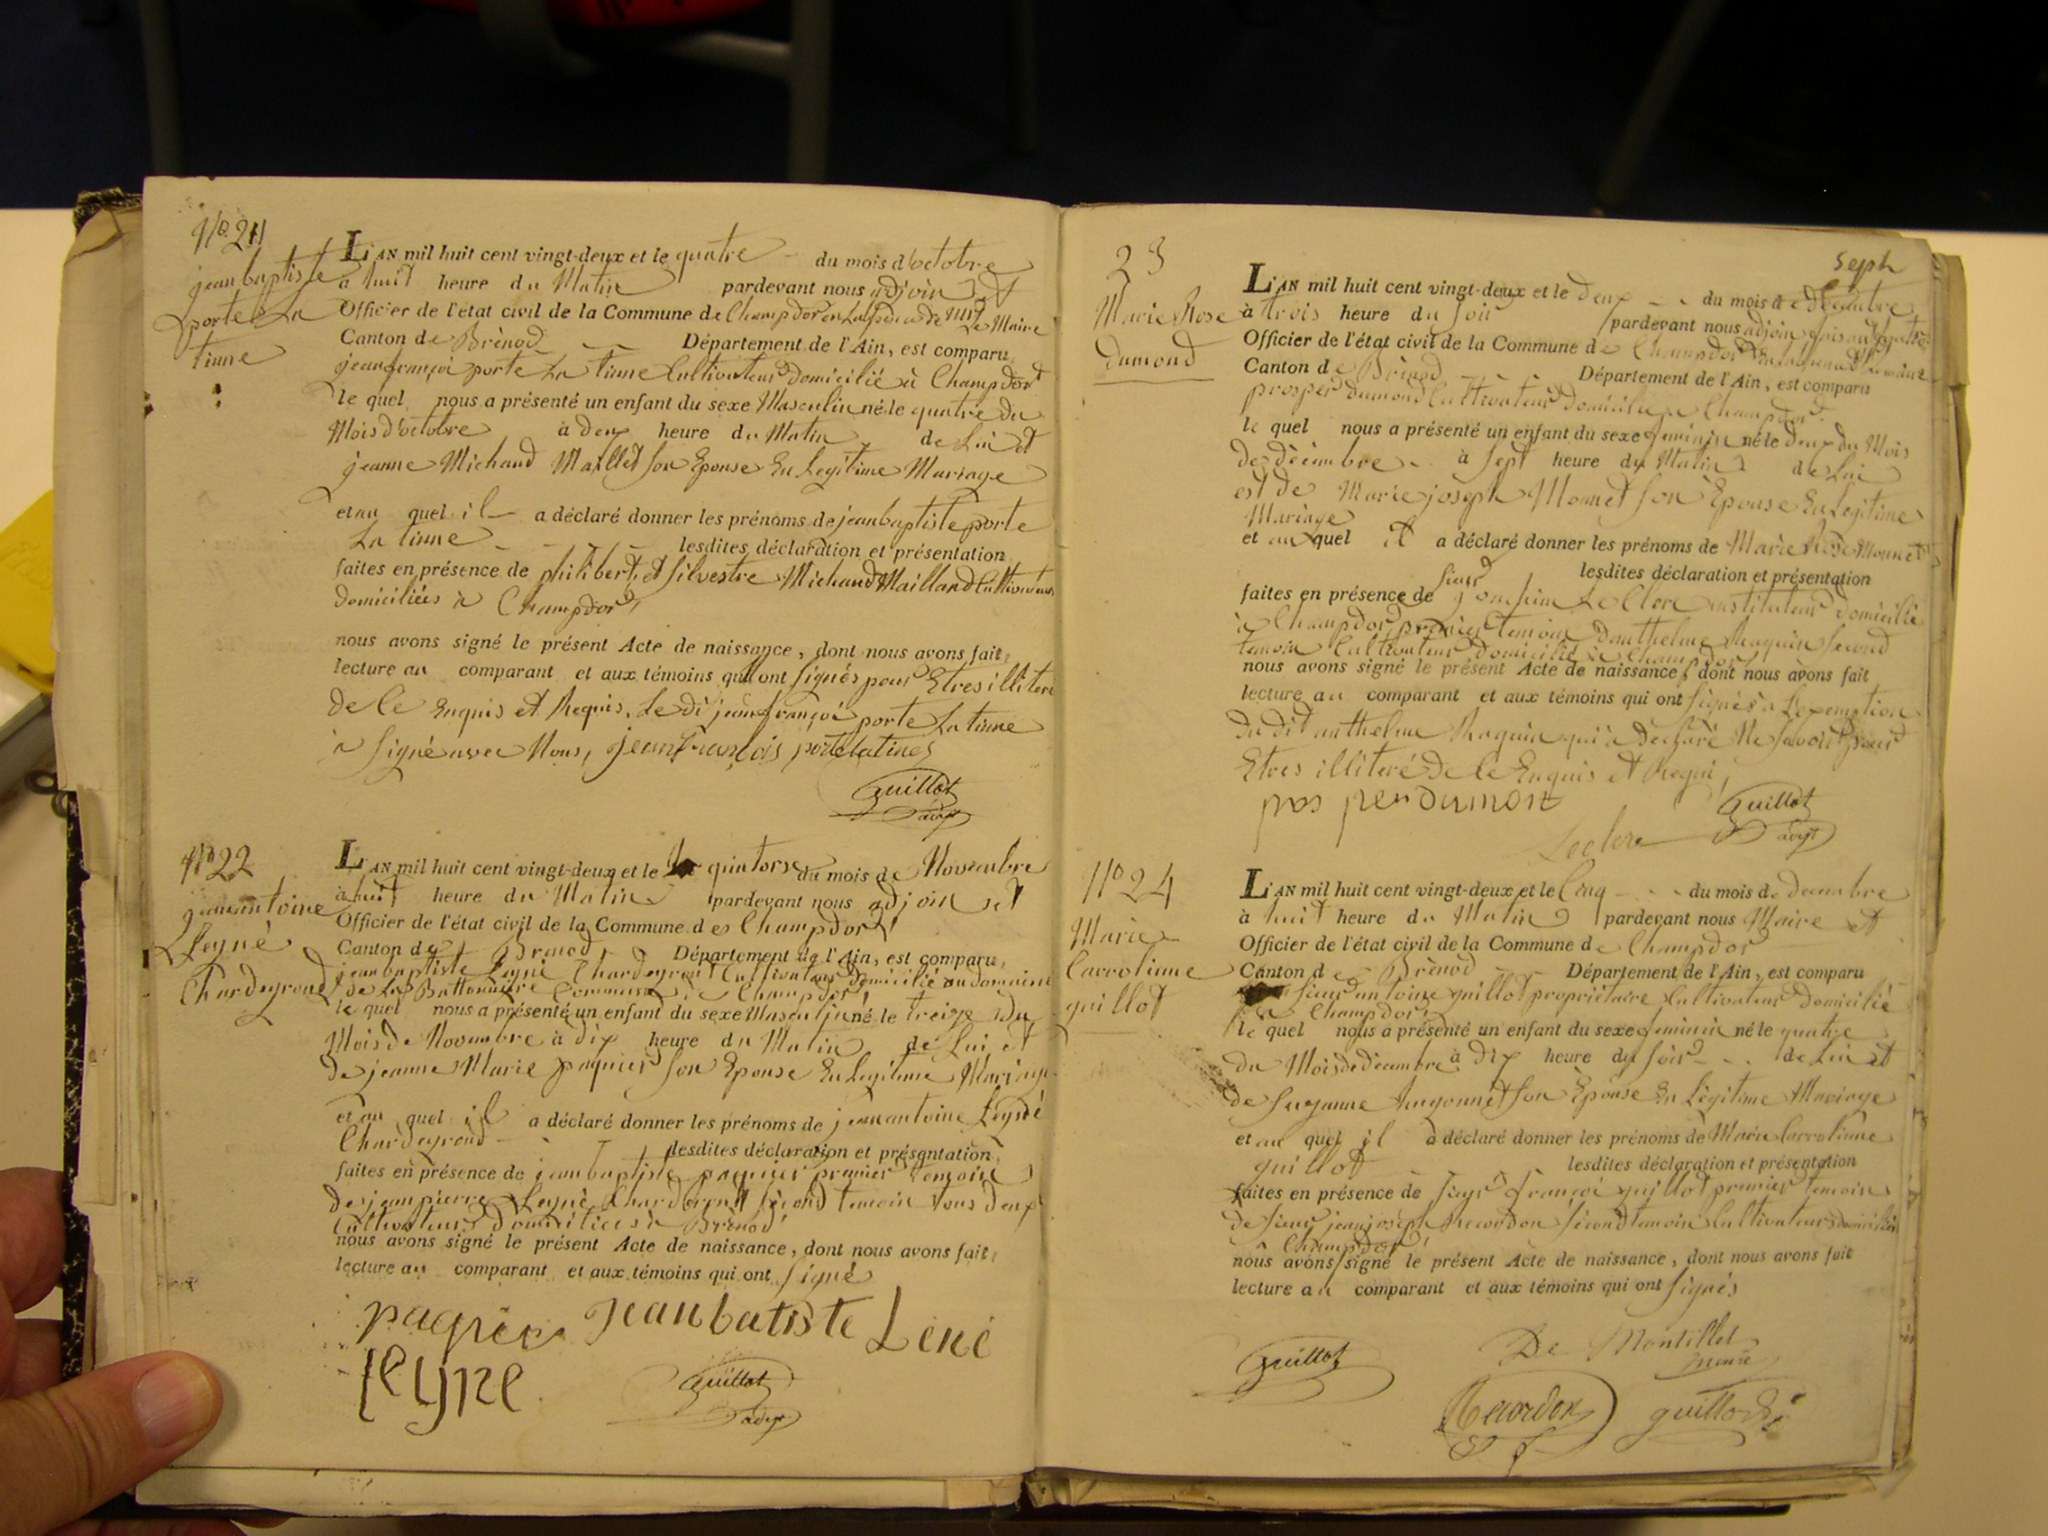 N.º 21
jean baptiste
porte La
tinne
L'AN mil huit cent vingt-deux et le quatre du mois d'octobre
à huit heure du Matin pardevant nous adjoin et
Officier de l'état civil de la Commune de Champdor En Le Maire
Canton de Brénod Département de l'Ain, est comparu
jean françoi porte La tinne Cultivateur Domicilié à Champdor
le quel nous a présenté un enfant du sexe Masculin né le quatre du
Mois d'octobre à deux heure du Matin de Lui et
jeanne Michaud Maillet son Epouse En Legitime Mariage
et au quel il a déclaré donner les prénoms de jean baptiste porte
La tinne lesdites déclaration et présentation
faites en présence de philibert et Silvestre Michaud Mailland Cultivateurs
domiciliés à Champdor
nous avons signé le présent Acte de naissance, dont nous avons fait
lecture au comparant et aux témoins qui ont signés pour Etres illiteré
de Ce Enquis et Requis. Le di jean françoi porte La tinne
à Signé avec Nous, jean françois porte latines
Guillot
adjt
Nº 22
jean antoine
Leyné
Chardeyrond
L'AN mil huit cent vingt-deux et le quatorse du mois de Novembre
à huit heure du Matin pardevant nous adjoin et
Officier de l'état civil de la Commune de Champdor
Canton de Brénod Département de l'Ain, est comparu
jean baptiste Leyné Chardeyron Cultivateur domicilié au domaine
de La Battonnière Commune de Champdor
le quel nous a présenté un enfant du sexe Masculin né le treize du
Mois de Novembre à dix heure du Matin de Lui et
de jeanne Marie paquier son Epouse En Legitime Mariage
et au quel il a déclaré donner les prénoms de jean antoine Leyné
Chardeyrond lesdites déclaration et présentation
faites en présence de jean baptiste paquier premier temoin
de jean pierre Leyné Chardeyron second temoin tous deux
Cultivateurs domiciliées à Brénod
nous avons signé le présent Acte de naissance, dont nous avons fait
lecture au comparant et aux témoins qui ont signé
paquier jean batiste Lené
leyne
Guillot
adjt
Seph
23
Marie Rose
dumond
L'AN mil huit cent vingt-deux et le deux du mois de décembre
à trois heure du soir pardevant nous adjoin
Officier de l'état civil de la Commune de Champdor
Canton de Brénod Département de l'Ain, est comparu
prosper dumond Cultivateur domicilié à Champdor
le quel nous a présenté un enfant du sexe feminin né le deux du Mois
de décembre à sept heure du Matin de Lui
est de Marie joseph Monnet son Epouse En Legitime
Mariage
et au quel il a déclaré donner les prénoms de Marie Rose Monnet
lesdites déclaration et présentation
faites en présence de sieur joachim Leclerc instituteur domicilié
à Champdor premier temoin danthelme Maquin second
temoin Cultivateur domicilié à Champdor
nous avons signé le présent Acte de naissance, dont nous avons fait
lecture au comparant et aux témoins qui ont signés à L'exemption
du dit anthelme Maquin qui à déclaré Ne savoir pour
Etres illiteré de Ce Enquis et Requi
pros per dumont
Guillot
Leclerc adjt
Nº 24
Marie
Carroline
guillot
L'AN mil huit cent vingt-deux et le Cinq du mois de decembre
à huit heure du Matin pardevant nous Maire et
Officier de l'état civil de la Commune de Champdor
Canton de Brénod Département de l'Ain, est comparu
sieur antoine guillot propriétaire Cultivateur domicilié
à Champdor
le quel nous a présenté un enfant du sexe feminin né le quatre
du Mois de decembre à dix heure du soir de Lui et
de Suzanne son Epouse En Légitime Mariage
et au quel il a déclaré donner les prénoms de Marie Carroline
guillot lesdites déclaration et présentation
faites en présence de sieur françoi guillot premier temoin
de sieur jean joseph Recordon second temoin Cultivateurs domiciliés
Champdor
nous avons signé le présent Acte de naissance, dont nous avons fait
lecture au comparant et aux témoins qui ont signés
Guillot De Montillet
maire
Recordon guillot